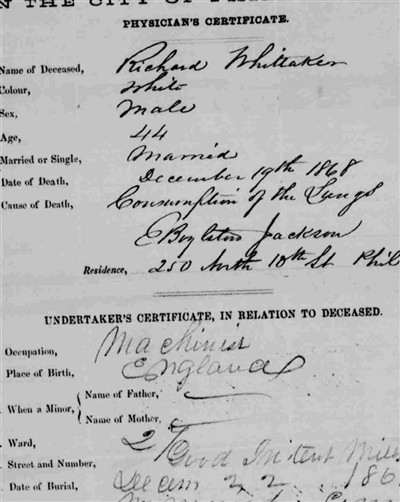 N THE CITY OF
PHYSICIAN'S CERTIFICATE.
Name of Deceased, Richard Whittaker
Colour, White
Sex, Male
Age, 44
Married or Single, Married
Date of Death, December 19th 1868
Cause of Death, Consumption of the Lungs
E Boylston Jackson
Residence, 250 North 10th St Phil
UNDERTAKER'S CERTIFICATE, IN RELATION TO DECEASED.
Occupation, Machinist
Place of Birth, England
When a Minor, { Name of Father,
Name of Mother,
Ward, 21
Street and Number, Good Intent Mills
Date of Burial, Decem 22 186